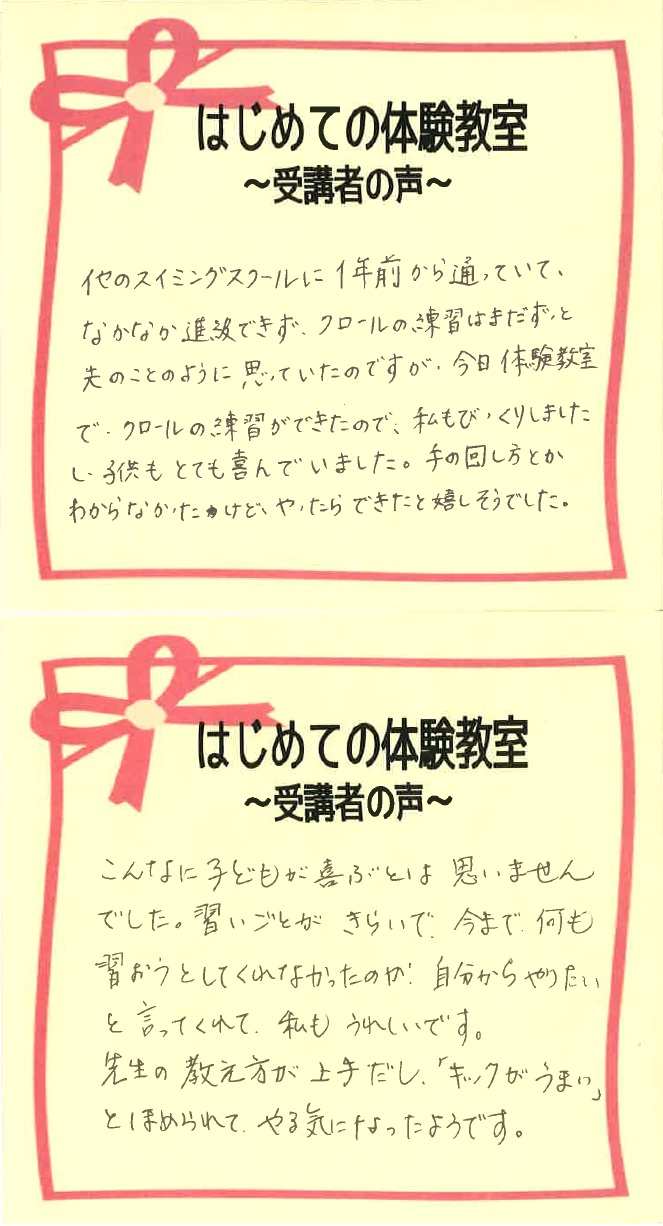 はじめての体験教室
～受講者の声～
他のスイミングスクールに1年前から通っていて、
なかなか進級できず、クロールの練習はまだずっと
先のことのように思っていたのですが、今日体験教室
で、クロールの練習ができたので、私もびっくりしました
し、子供もとても喜んでいました。手の回し方とか
わからなかったけど、やったらできたと嬉しそうでした。
はじめての体験教室
～受講者の声～
こんなに子どもが喜ぶとは思いません
でした。習いごとがきらいで、今まで、何も
習おうとしてくれなかったのが、自分からやりたい
と言ってくれて、私もうれしいです。
先生の教え方が上手だし、「キックがうまい」
とほめられて、やる気になったようです。